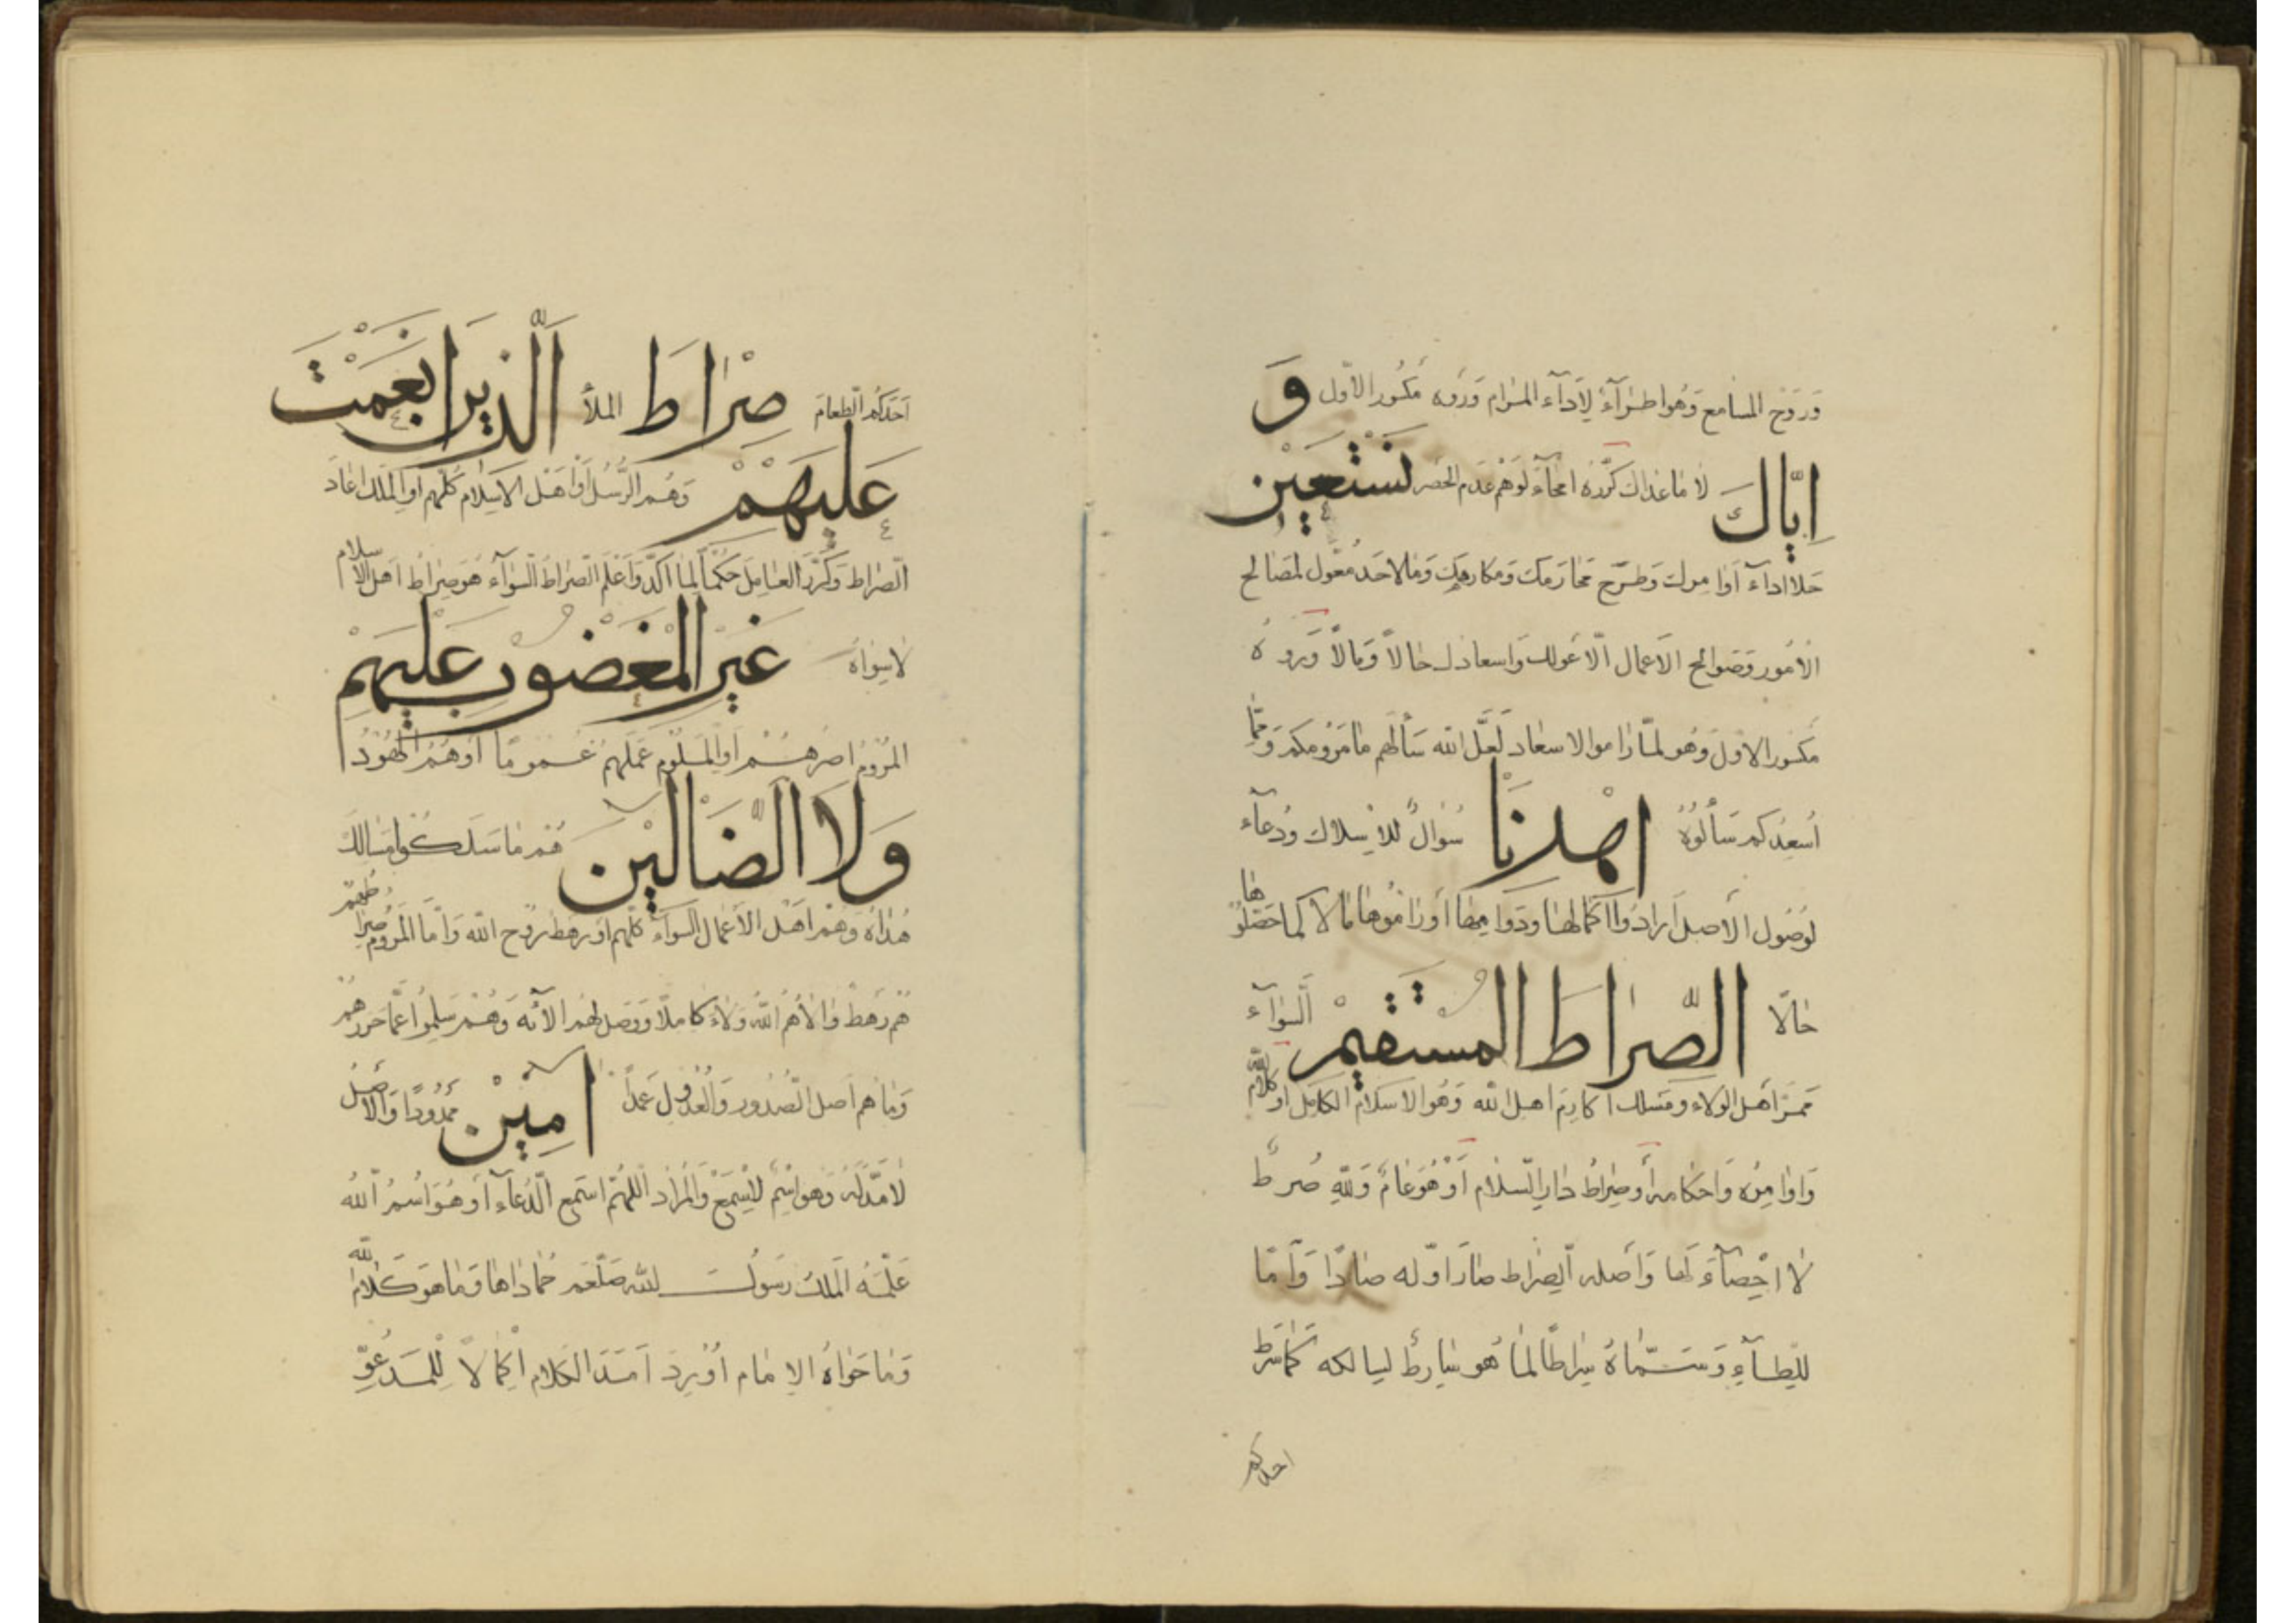 وَرَوْح المسامع وَهُوَ اطرآءٌ لِأَدآء المرام وَرَوه مَكسُور الأوّل وَ
اِيَّاكَ لا ماعداك كرّره امحآءً لوَهْم عَدم الحصر نَسْتَعِيْن
حَلا اداءَ أوامرك وَطرح محارمك ومكارهك وَمالاحَد مُعَوّل لمصَالح
الأمُور وَصَوالح الأعمال الّا عَولك وَاسعادك حالاً وَمالاً وَرَوه
مكسُور الاوّل وَهُو لمّا راموا الاسعاد لعَلّ الله سَألهم مامرومكم وَممّا
أسعِدكم سَألُوهُ اهْدِنَا سُؤالٌ للاسلاك ودُعآء
لوُصُول الأصل أرادوا اكمَالها ودَوامها أو رامُوها مالا كما حَصّلوها
حَالًا الصِّرَاطَ الْمُسْتَقِيْمَ السَّوآء
مَمَرّ أهل الولاء ومَسلك اكارِم اهل الله وَهُو الاسلام الكامل او كلام الله
وَاوامِرُه وَاحكامه أو صِراطُ دار السّلام أو هُوَ عَامٌ وَللهِ صُرطٌ
لا احْصآءَ لَها وَأصله السِّراط صَارَ اوّله صادًا وَأمّا
لِلطآءِ وَسَمّاهُ سِراطًا لما هُو سَارِطٌ لسالكه كَمَا سَرَطَ
احدكم
أحَدَكُم الطّعامَ صِرَاطَ الملأ الَّذِينَ اَنْعَمْتَ
عَلَيْهِمْ وَهُم الرُّسُل أو اهَل الاسلام كُلّهم أو المَلك اعَادَ
الصّراط وَكَرّر العَامِل حكمًا لما اكّد وَاعْلَم الصّراط السَّوآء هُوَ صِراطُ اهل الاسلام
لا سِوَاهُ غَيْرِ الْمَغْضُوْبِ عَلَيْهِمْ
المَرُوم اصرهُم أو المسلوم عَمَلهُم عُمومًا أو هُم الهُوْدُ
وَلَا الضَّالِّيْنَ هُم ماسَلكُوا مسَالكَ
هُداهُ وَهُم اهَل الأعْمال السَّوآء كلّهم أو رهط رُوح الله وَامّا المَرُوم صِراطهم
هُم رَهطٌ وَالاهُم اللهُ وَلاءً كاملًا وَوَصل لهُم الآئه وَهُم سَلِموُا عَمّا حَردهُم
وَماهُم اصل الصُّدُور وَالعُدُول عَمدًا آمِيْن مَمدُودًا وَالاصل
لا مَدّ لَهُ وَهو اسْمٌ لاسْمَعْ وَالمُراد اللّهُمَّ اسْتمع الدُّعآء أو هُوَ اسْمُ اللهُ
عَلّمَهُ المَلك رَسُولَ الله صَلعَم حمَاداها وَماهوَ كَلام الله
وَما حَواهُ الامام أوْ رد امَدَ الكلام اكمالاً لِلمَدعُوِّ